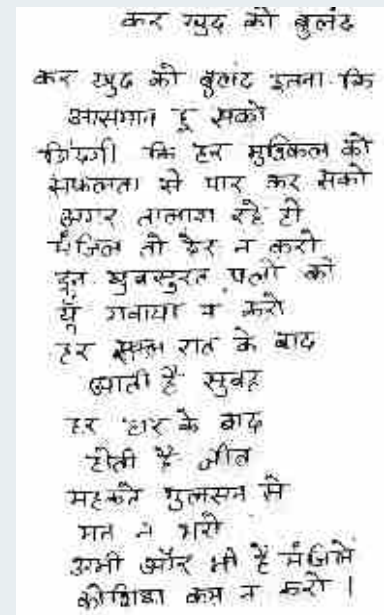 कर खुद को बुलंद
कर खुद को बुलंद इतना कि
आसमान छू सको
जिंदगी कि हर मुश्किल को
सफलता से पार कर सको
अगर तालाश रहे हो
मंजिल तो देर न करो
इन खुबसुरत पलों को
यूँ गवाया न करो
हर रात के बाद
आती है सुबह
हर हार के बाद
होती है जीत
महकते गुलसन से
मन न भरो
अभी और भी है मंजिले
कोशिश कम न करो ।